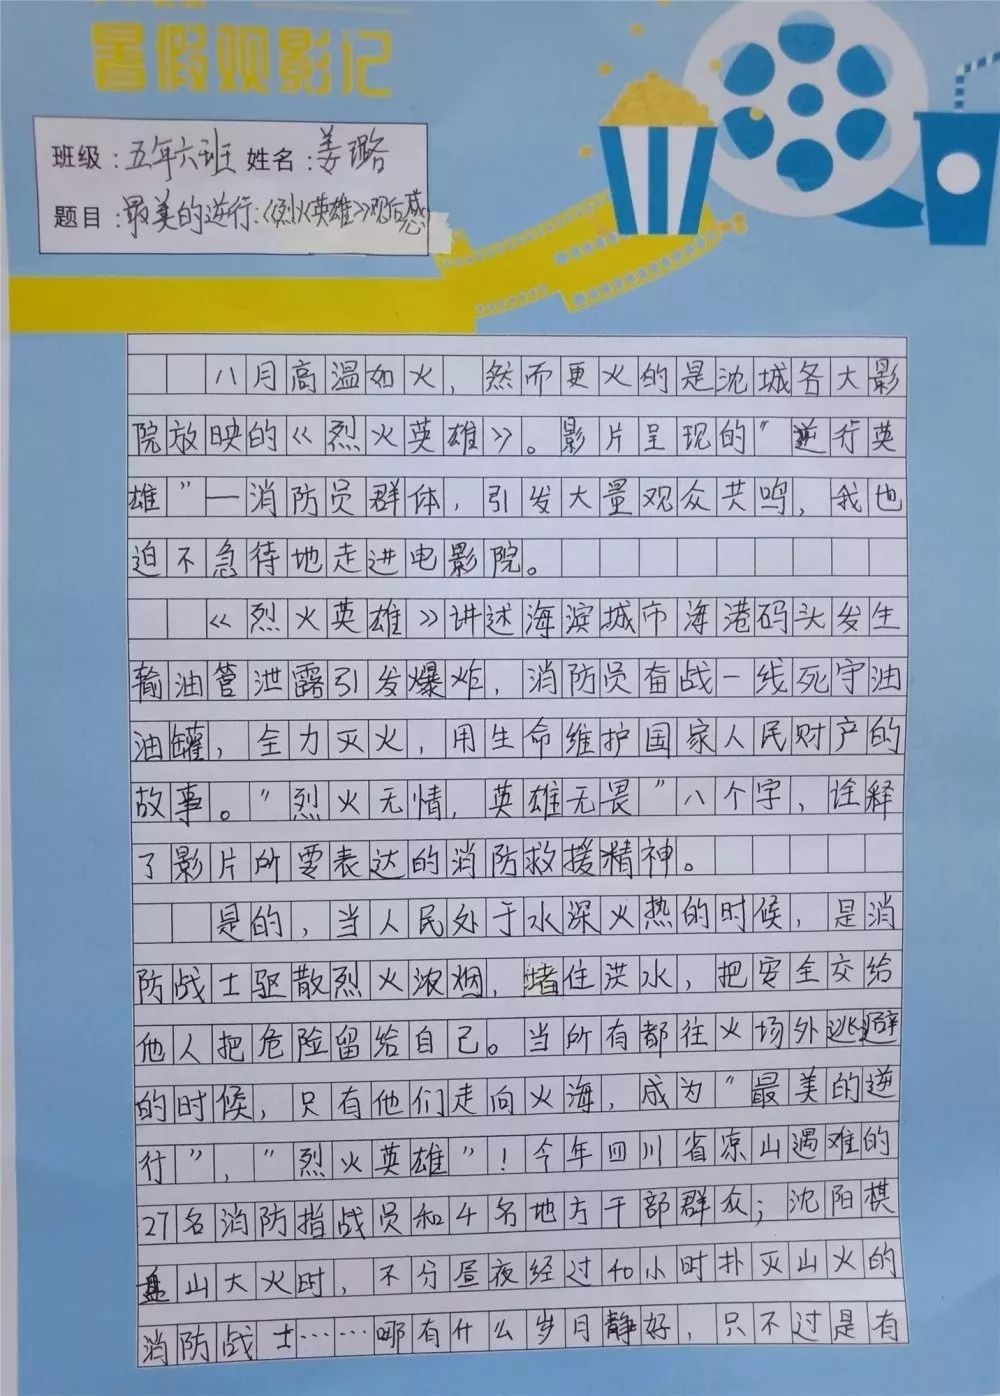 暑假观影记
班级：五年六班 姓名：姜璐
题目：最美的逆行：《烈火英雄》观后感
八月高温如火，然而更火的是沈城各大影
院放映的《烈火英雄》。影片呈现的“逆行英
雄”—消防员群体，引发大量观众共鸣，我也
迫不急待地走进电影院。
《烈火英雄》讲述海滨城市海港码头发生
输油管泄露引发爆炸，消防员奋战一线死守油
油罐，全力灭火，用生命维护国家人民财产的
故事。“烈火无情，英雄无畏”八个字，诠释
了影片所要表达的消防救援精神。
是的，当人民处于水深火热的时候，是消
防战士驱散烈火浓烟，堵住洪水，把安全交给
他人把危险留给自己。当所有都往火场外逃避
的时候，只有他们走向火海，成为“最美的逆
行”，“烈火英雄”！今年四川省凉山遇难的
27名消防指战员和4名地方干部群众；沈阳棋
盘山大火时，不分昼夜经过40小时扑灭山火的
消防战士……哪有什么岁月静好，只不过是有